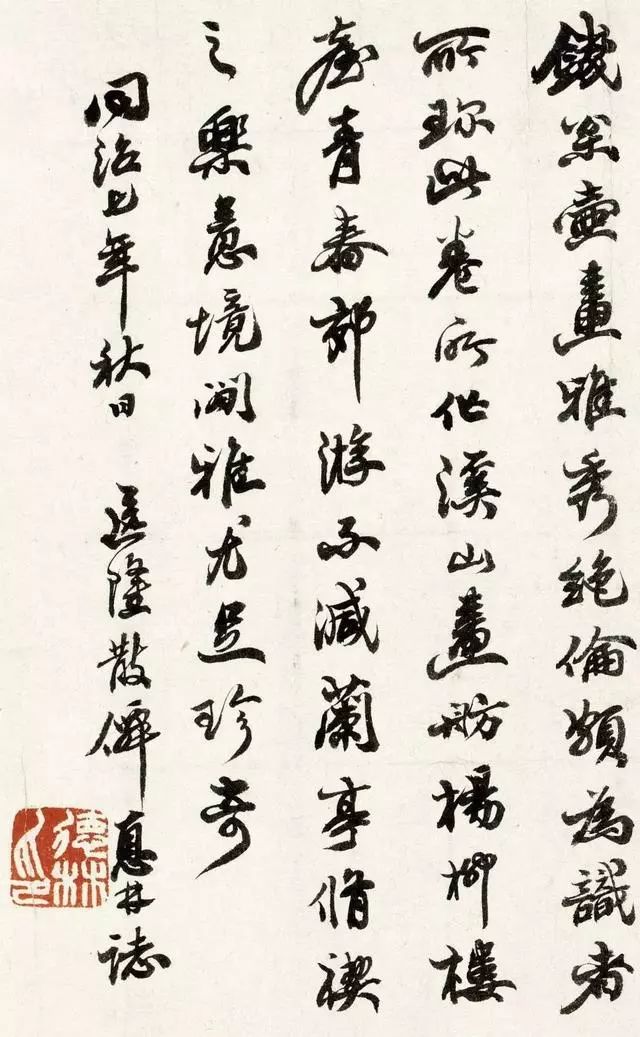 錢松壺畫雅秀絕倫頗為識者
所珎此卷所作溪山畫舫楊柳樓
臺青春郊游不減蘭亭脩禊
之樂意境閒雅尤足珍奇
同治七年秋日 隆散僊悳林誌
德林之印